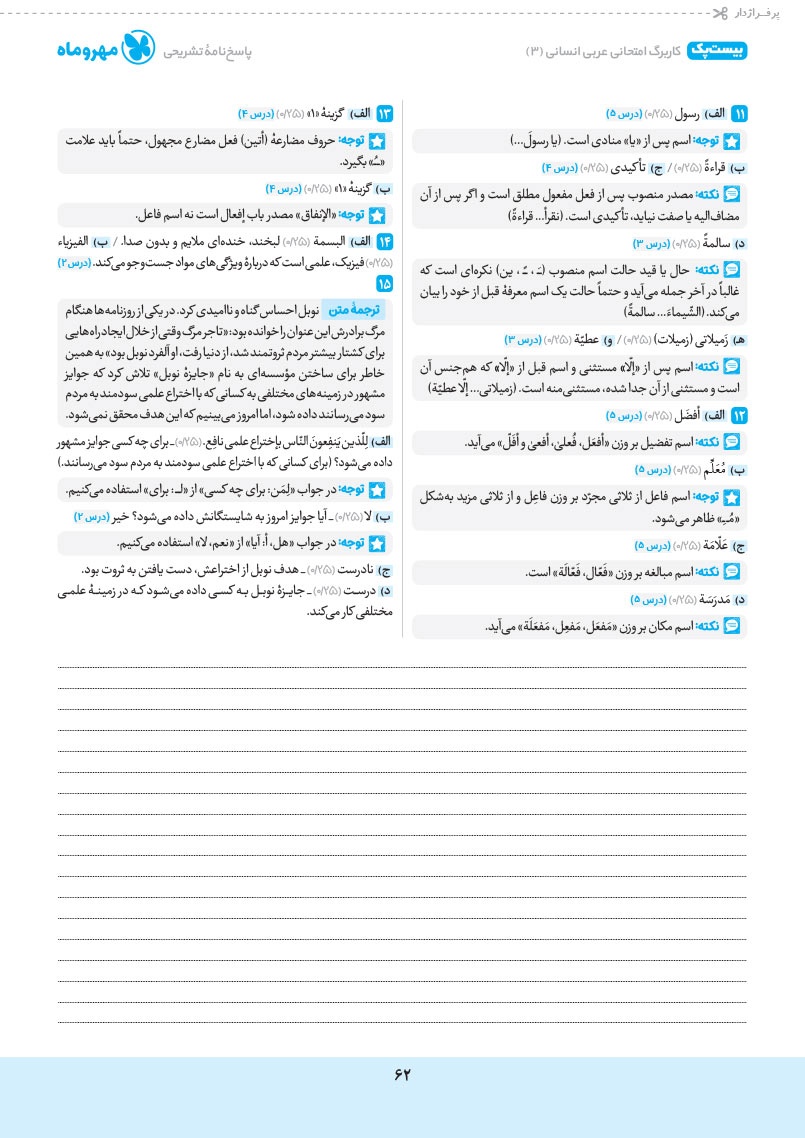 پرفراژدار
بیست‌پک کاربرگ امتحانی عربی انسانی (۳)
پاسخ‌نامهٔ تشریحی مهروماه
۱۱ الف) رسول (۰/۲۵) (درس ۵)
توجه: اسم پس از «یا» منادی است. (یا رسولَ...)
ب) قراءةً (۰/۲۵) / ج) تأکیدی (۰/۲۵) (درس ۴)
نکته: مصدر منصوب پس از فعل مفعول مطلق است و اگر پس از آن
مضاف‌الیه یا صفت نیاید، تأکیدی است. (نقرأ... قراءةً)
د) سالمةً (۰/۲۵) (درس ۳)
نکته: حال یا قید حالت اسم منصوب (ـَ ، ـً ، ین) نکره‌ای است که
غالباً در آخر جمله می‌آید و حتماً حالت یک اسم معرفهٔ قبل از خود را بیان
می‌کند. (الشّیماءَ... سالمةً)
هـ) زَمیلاتی (زمیلات) (۰/۲۵) / و) عطیّة (۰/۲۵) (درس ۳)
نکته: اسم پس از «إلّا» مستثنی و اسم قبل از «إلّا» که هم‌جنس آن
است و مستثنی از آن جدا شده، مستثنی‌منه است. (زمیلاتی... إلّا عطیّة)
۱۲ الف) أفضَل (۰/۲۵) (درس ۵)
نکته: اسم تفضیل بر وزن «أفعَل، فُعلیٰ، أفعیٰ و أفَلّ» می‌آید.
ب) مُعَلِّم (۰/۲۵) (درس ۵)
توجه: اسم فاعل از ثلاثی مجرّد بر وزن فاعِل و از ثلاثی مزید به‌شکل
«مُـِـ» ظاهر می‌شود.
ج) عَلّامَة (۰/۲۵) (درس ۵)
نکته: اسم مبالغه بر وزن «فَعّال، فَعّالَة» است.
د) مَدرَسَة (۰/۲۵) (درس ۵)
نکته: اسم مکان بر وزن «مَفعَل، مَفعِل، مَفعَلَة» می‌آید.
۱۳ الف) گزینهٔ «۱» (۰/۲۵) (درس ۴)
توجه: حروف مضارعهٔ (أتین) فعل مضارع مجهول، حتماً باید علامت
«ـُ» بگیرد.
ب) گزینهٔ «۱» (۰/۲۵) (درس ۴)
توجه: «الإنفاق» مصدر باب إفعال است نه اسم فاعل.
۱۴ الف) البسمة (۰/۲۵) لبخند، خنده‌ای ملایم و بدون صدا. / ب) الفیزیاء
(۰/۲۵) فیزیک، علمی است که دربارهٔ ویژگی‌های مواد جست‌وجو می‌کند. (درس ۲)
۱۵
ترجمهٔ متن نوبل احساس گناه و ناامیدی کرد. در یکی از روزنامه‌ها هنگام
مرگ برادرش این عنوان را خوانده بود: «تاجر مرگ وقتی از خلال ایجاد راه‌هایی
برای کشتار بیشتر مردم ثروتمند شد، از دنیا رفت، او آلفرد نوبل بود» به همین
خاطر برای ساختن مؤسسه‌ای به نام «جایزهٔ نوبل» تلاش کرد که جوایز
مشهور در زمینه‌های مختلفی به کسانی که با اختراع علمی سودمند به مردم
سود می‌رسانند داده شود، اما امروز می‌بینیم که این هدف محقق نمی‌شود.
الف) لِلّذین یَنفِعونَ النّاس بإختراع علمی نافع. (۰/۲۵) ـ برای چه کسی جوایز مشهور
داده می‌شود؟ (برای کسانی که با اختراع علمی سودمند به مردم سود می‌رسانند.)
توجه: در جواب «لِمَن: برای چه کسی» از «لـ: برای» استفاده می‌کنیم.
ب) لا (۰/۲۵) ـ آیا جوایز امروز به شایستگانش داده می‌شود؟ خیر (درس ۲)
توجه: در جواب «هل، أ: آیا» از «نعم، لا» استفاده می‌کنیم.
ج) نادرست (۰/۲۵) ـ هدف نوبل از اختراعش، دست یافتن به ثروت بود.
د) درست (۰/۲۵) ـ جایزهٔ نوبل به کسی داده می‌شود که در زمینهٔ علمی
مختلفی کار می‌کند.
۶۲